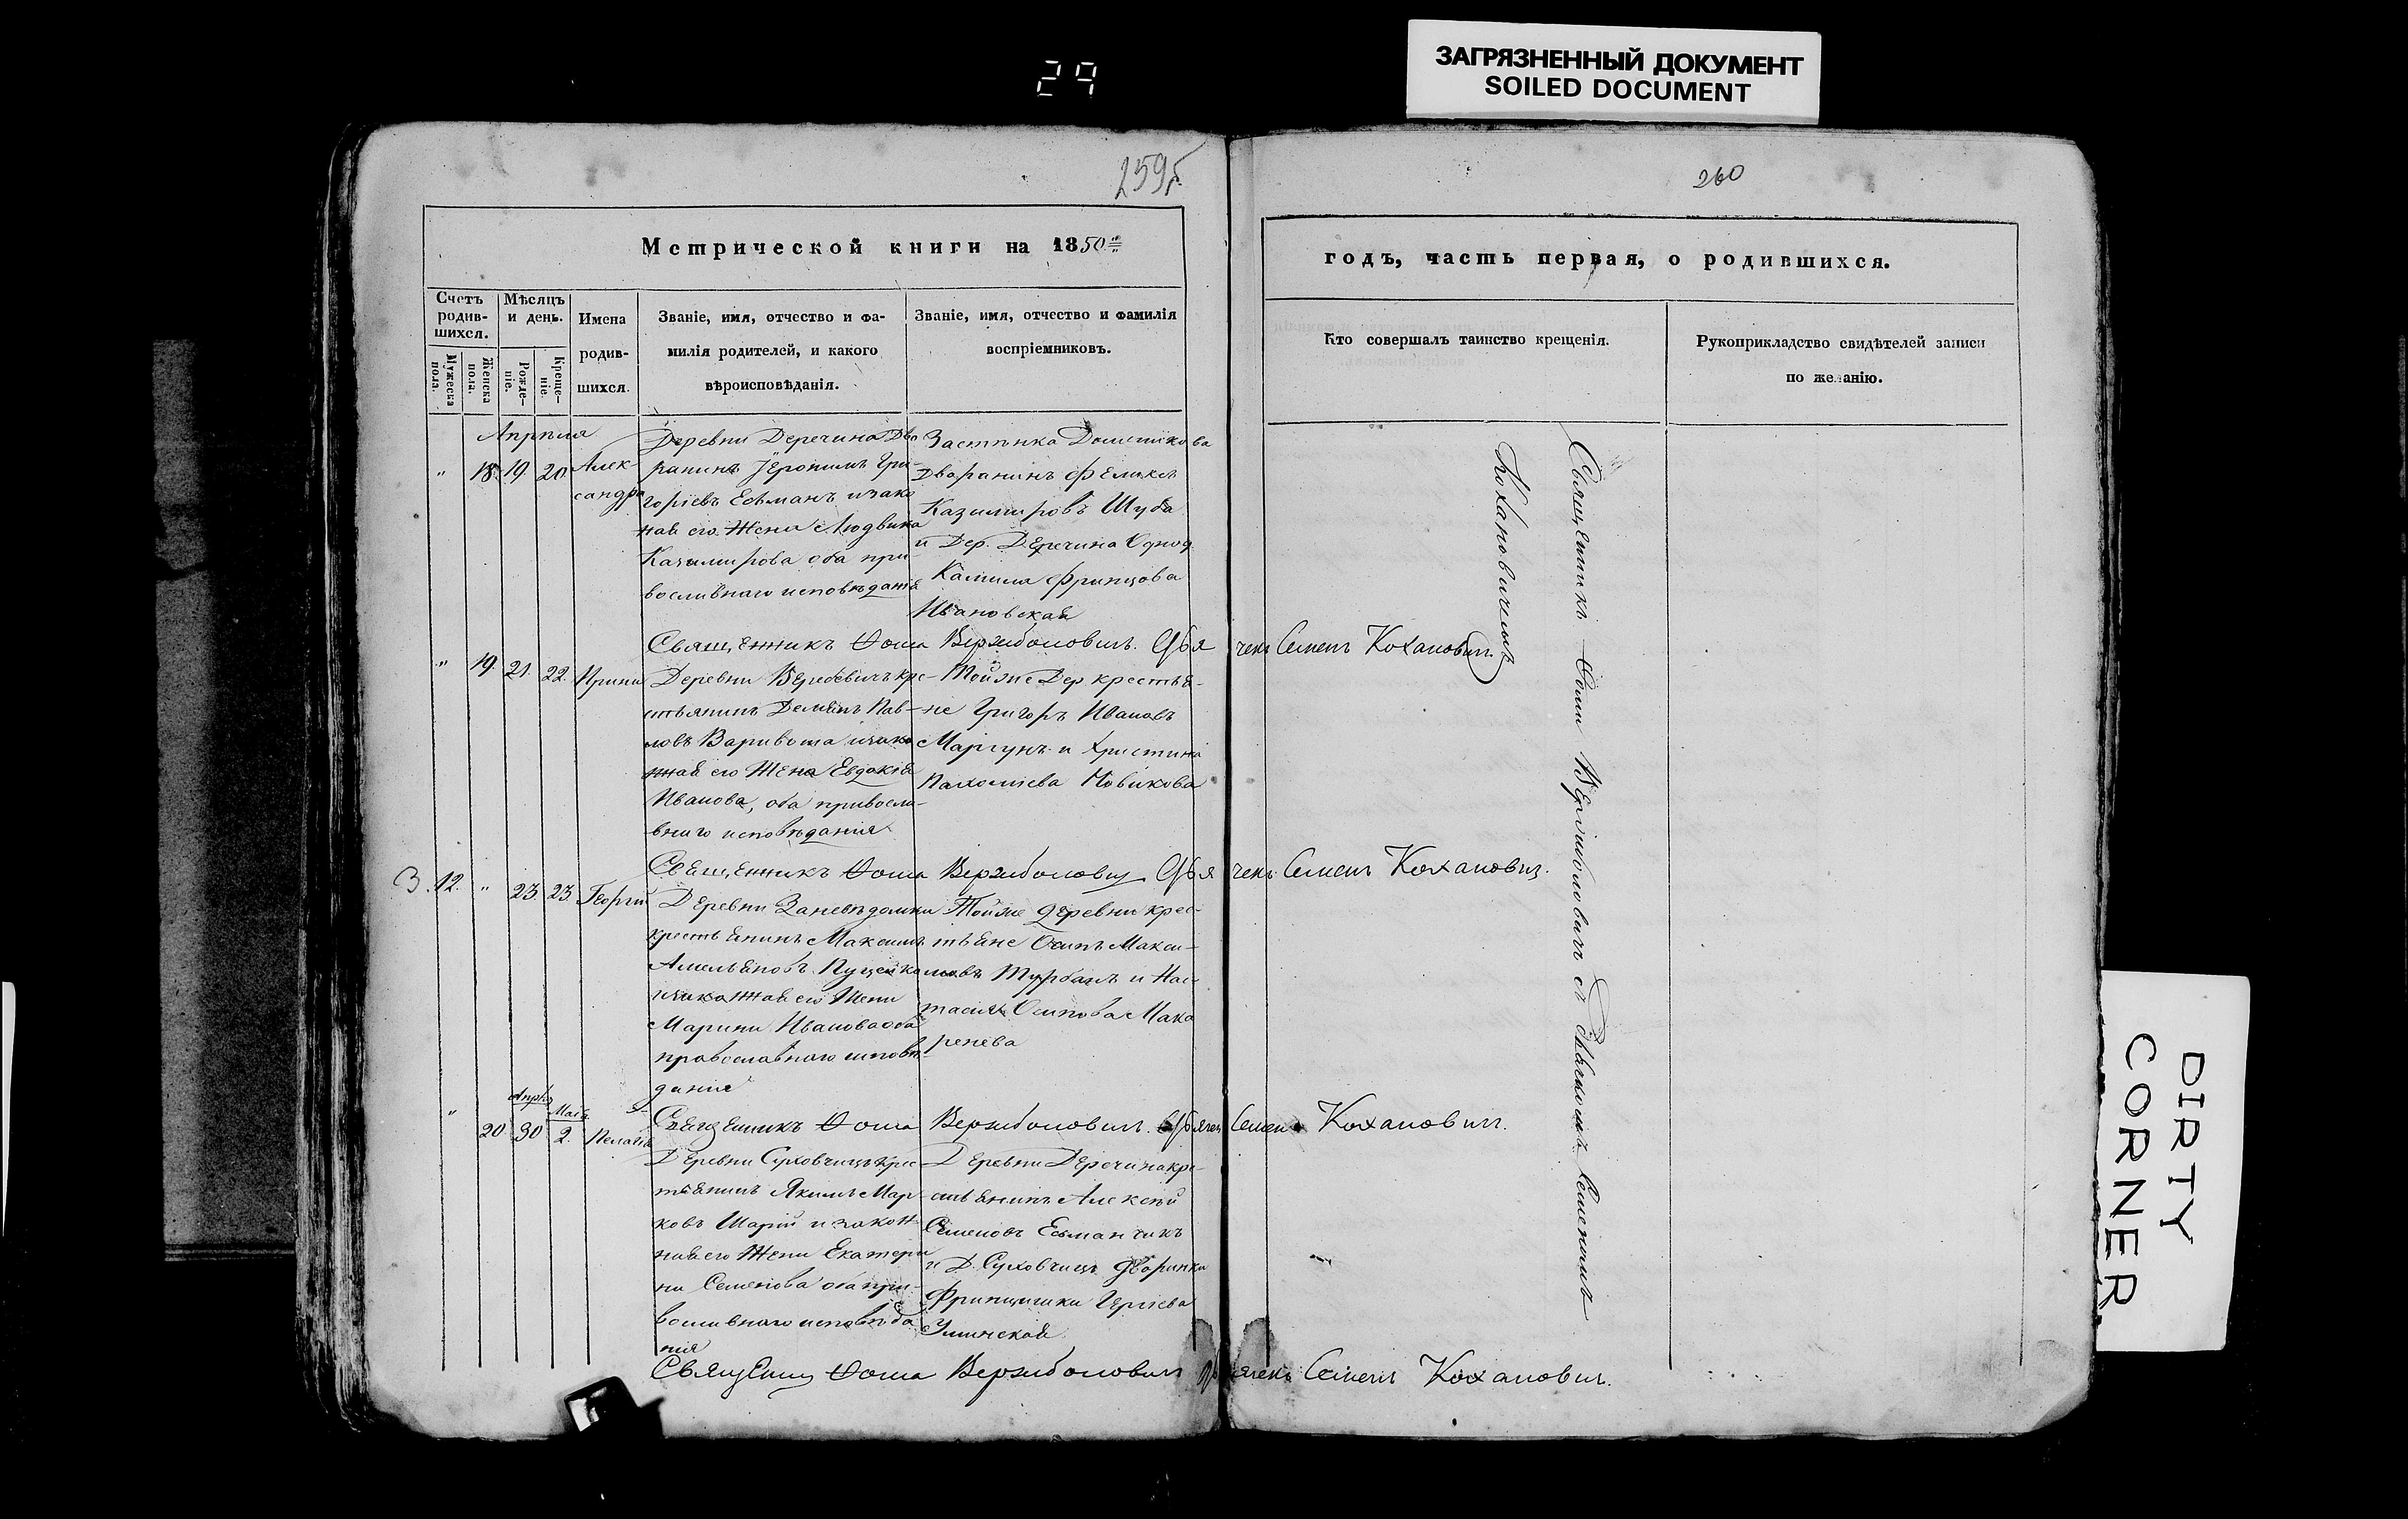 29
ЗАГРЯЗНЕННЫЙ ДОКУМЕНТ
SOILED DOCUMENT
260
Метрической книги на 1850
Счетъ родив-шихся.
Мѣсяцъ и день.
Мужеска пола.
Женска пола.
Рожде-ніе.
Креще-ніе.
Имена
родив-
шихся.
Званіе, имя, отчество и фа-
милія родителей, и какого
вѣроисповѣданія.
Званіе, имя, отчество и фамилія
воспріемниковъ.
годъ, часть первая, о родившихся.
Кто совершалъ таинство крещенія.
Рукоприкладство свидѣтелей записи
по желанію.
Апрѣля
" 18. 19. 20. Алек-
сандра
Деревни Деречина Дво
ранинъ Іеронимъ Гри-
горіевъ Есьманъ изако
ная его Жена Людвика
Казимирова оба пра
вославнаго исповѣданія
Застѣнка
Дваранинъ Феликсъ
Казимировъ Шуба
и Дер. Деречина Однод
Францова
Ивановская
Священникъ Ѳома Вержболовичъ. Дьячекъ Семенъ Кохановичъ
" 19. 21. 22. Ирина
Деревни кре-
стьянинъ Демьянъ Пав-
ловъ Варивота изако
нная его Жена Евдокія
Иванова, оба правосла-
внаго исповѣданія
Тойже Дер крестья-
не Григоръ Ивановъ
и Христина
Пахоміева Новикова
Священникъ Ѳома Вержболовичъ Дьячекъ Семенъ Кохановичъ.
3. 12. " 23. 23. Георгій
Деревни Заневѣдомки
крестьянинъ Максимъ
Амельяновъ
изаконная его Жена
Марина Иванова оба
православнаго исповѣ-
данія
Тойже деревни крес-
тьяне Осипъ Макси-
мовъ и Нас-
тасія Осипова Мака
ренева
Священникъ Ѳома Вержболовичъ. Дьячекъ Семенъ Кохановичъ.
Апрѣ Мая
" 20 30 2. Пелагія
Деревни Суховчицъ Крес
тьянинъ Якимъ Мар-
ковъ Шарій и закон-
ная его Жена Екатери
на Семенова оба пра-
вославнаго исповѣда
нія
Деревни Деречина кре-
стьянинъ Алексѣй
Семеновъ Есьманчикъ
и Д. Суховчицъ дворянка
Францишка
Священникъ Ѳома Вержболовичъ Дьячекъ Семенъ Кохановичъ.
Священникъ Ѳома Вержболовичъ съ Дьячкомъ Семеномъ
Кохановичемъ
DIRTY
CORNER